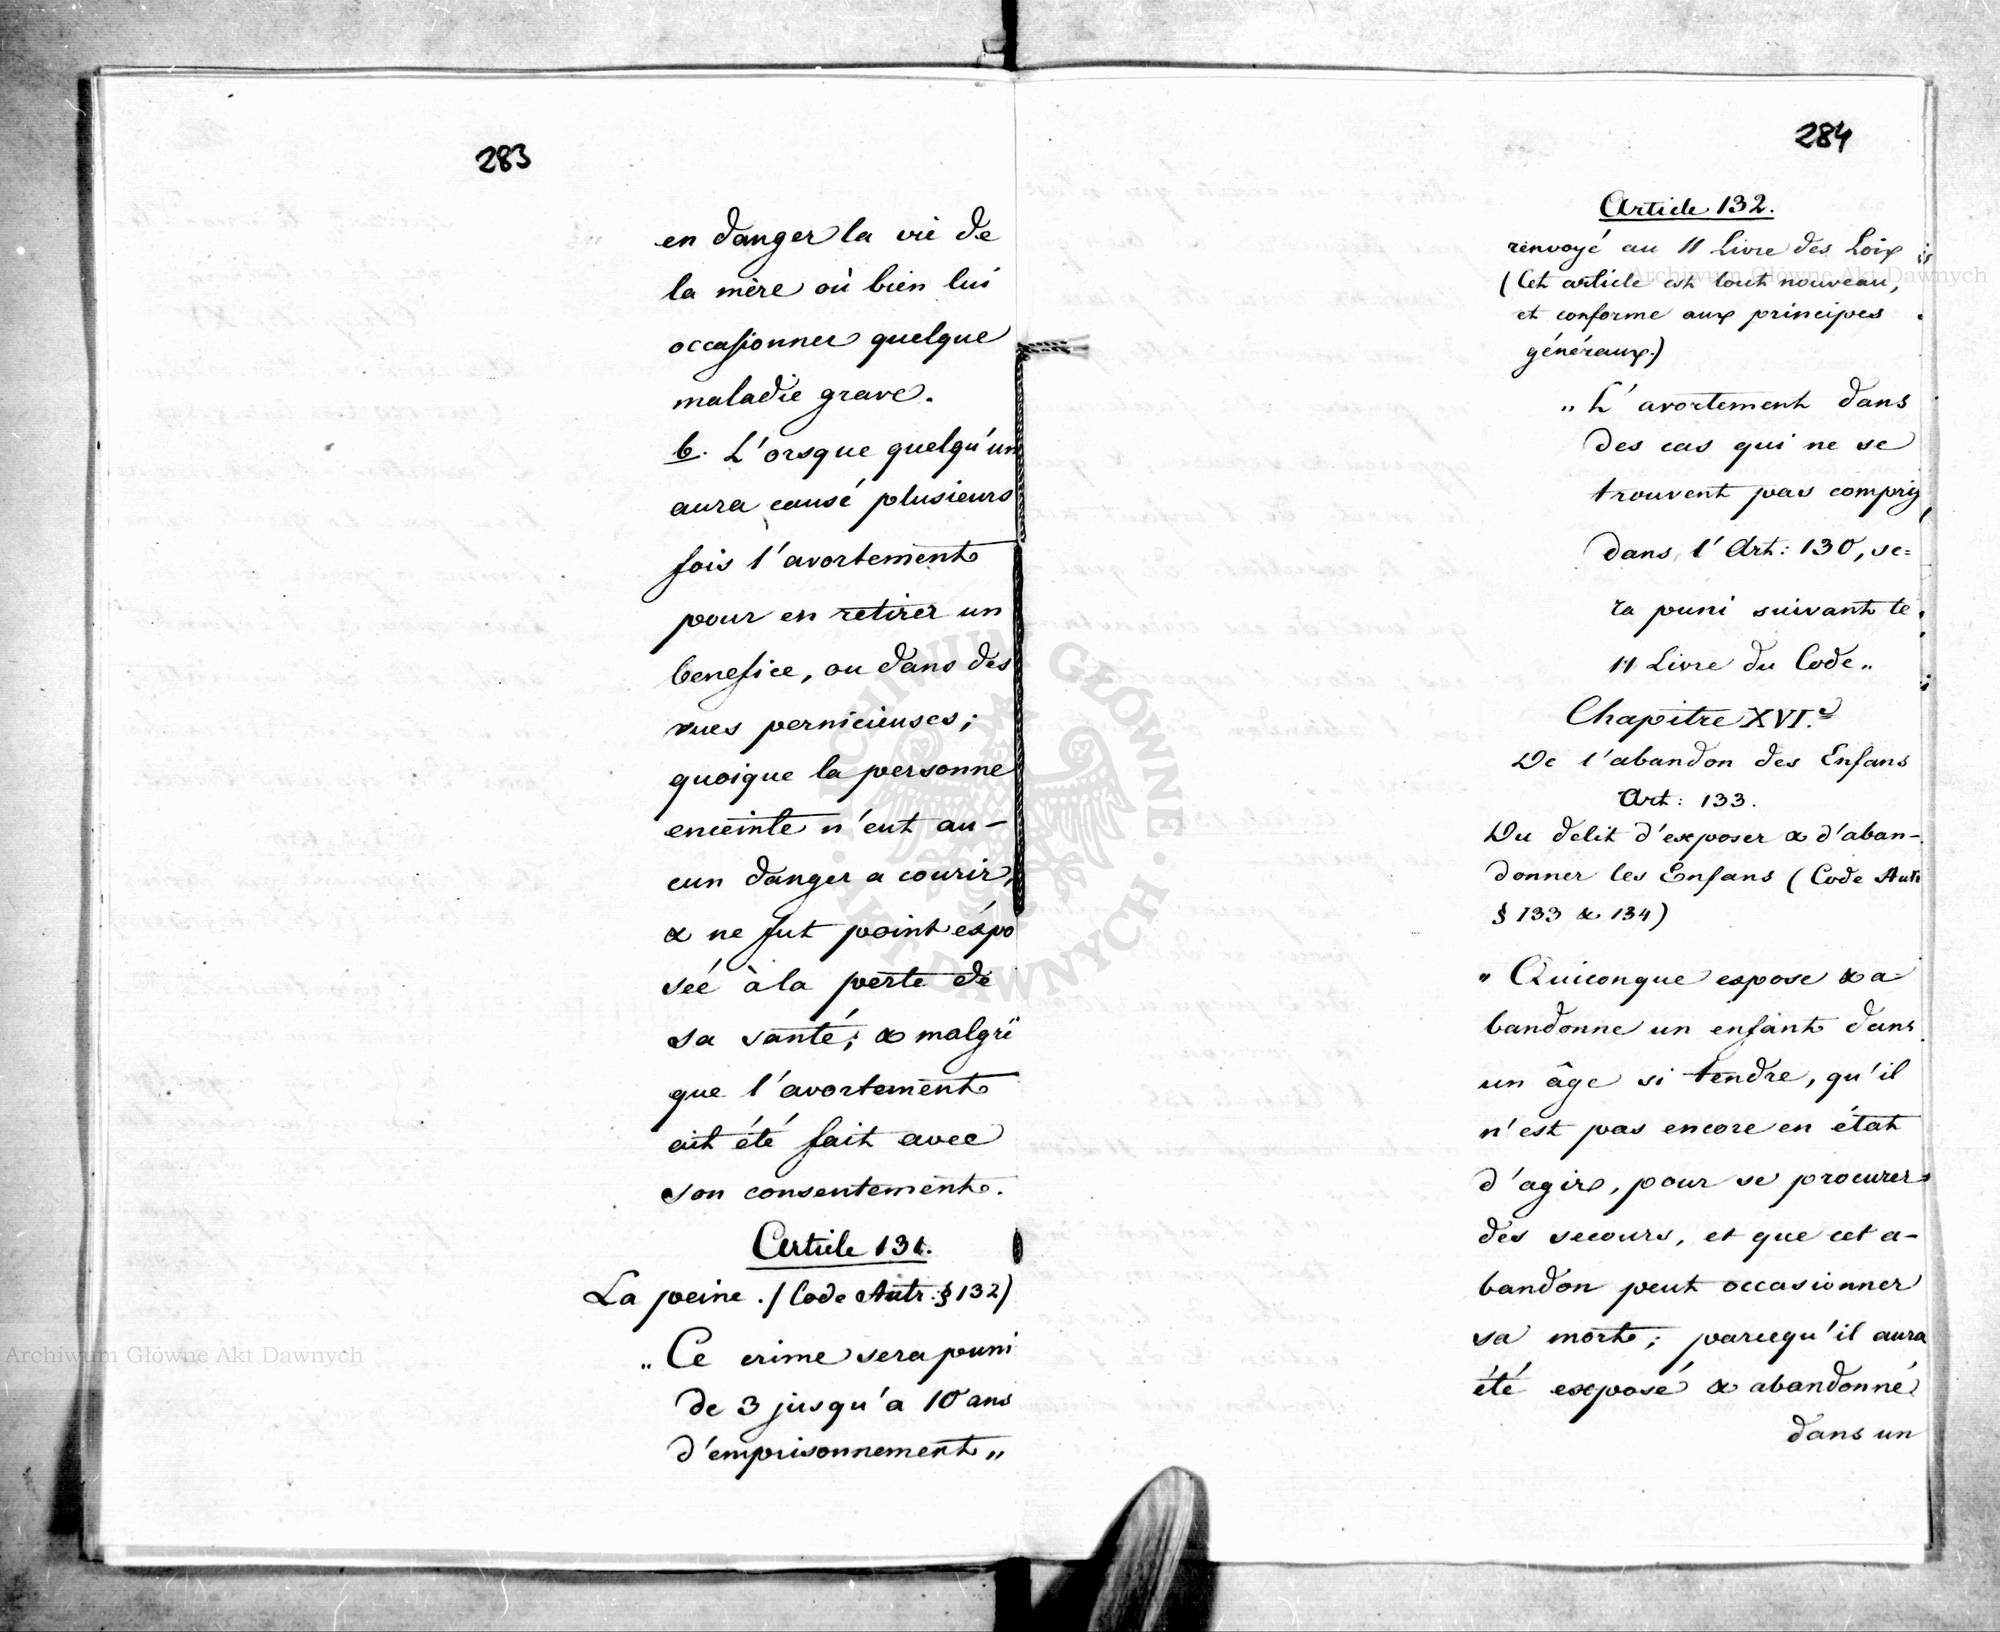 283
en danger la vie de
la mère où bien lui
occasionner quelque
maladie grave.
b. L'orsque quelqu'un
aura causé plusieurs
fois l'avortement
pour en retirer un
benefice, ou dans des
vues pernicieuses;
quoique la personne
enceinte n'eut au-
cun danger a courir,
& ne fut point éxpo
seé à la perte de
sa santé; & malgré
que l'avortement
ait été fait avec
son consentement.
Article 131.
La peine. / Code Autr. § 132)
„ Ce crime sera puni
de 3 jusqu'a 10 ans
d'emprisonnement „
284
Article 132.
renvoyé au II Livre des Loix
(Cet article est tout nouveau,
et conforme aux principes
généraux.)
„ L'avortement dans
des cas qui ne se
trouvent pas compris
dans l'Art: 130, se=
ra puni suivant le
II Livre du Code „
Chapitre XVI.e
De l'abandon des Enfans
Art: 133.
Du delit d'exposer & d'aban-
donner les Enfans (Code Autr
§ 133 & 134)
„ Quiconque expose & a-
bandonne un enfant dans
un âge si tendre, qu'il
n'est pas encore en état
d'agir, pour se procurer
des secours, et que cet a-
bandon peut occasionner
sa mort; parcequ'il aura
été exposé & abandonné
dans un
Archiwum Główne Akt Dawnych
Archiwum Główne Akt Dawnych
ARCHIWUM GŁÓWNE · AKT DAWNYCH ·